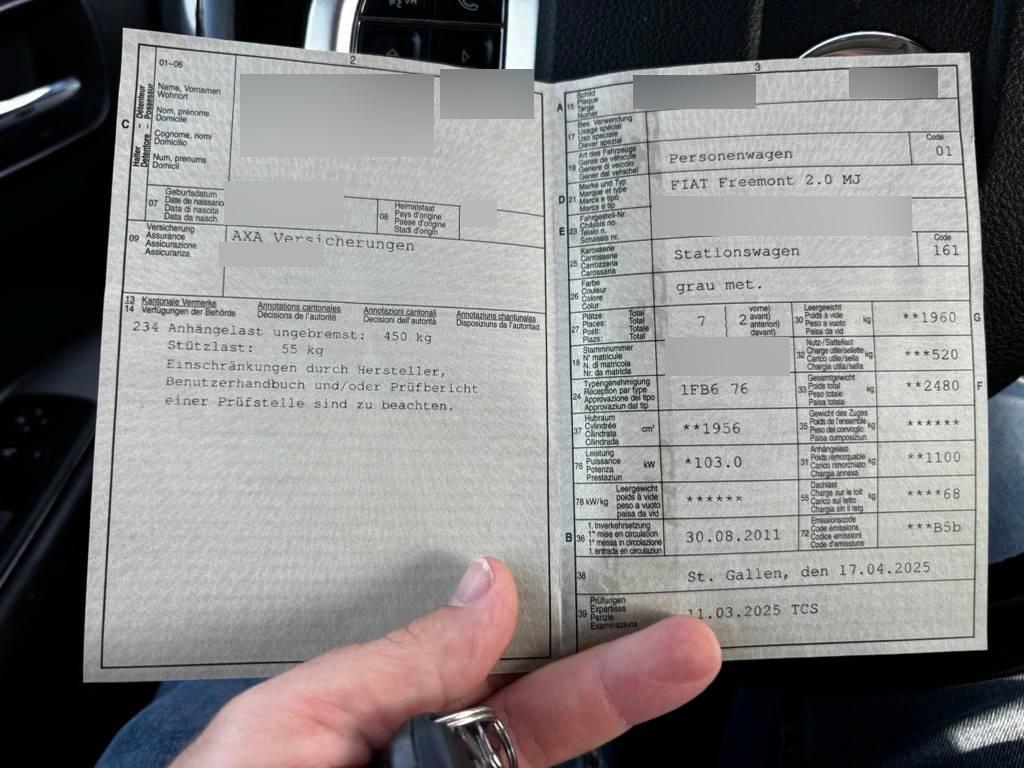 2
01-06
C
Halter - Détenteur
Detentore - Possessur
Name, Vornamen
Wohnort
Nom, prénoms
Domicile
Cognome, nomi
Domicilio
Num, prenums
Domicil
07
Geburtsdatum
Date de naissance
Data di nascita
Data da nasch.
08
Heimatstaat
Pays d'origine
Paese d'origine
Stadi d'origin
09
Versicherung
Assurance
Assicurazione
Assicuranza
AXA Versicherungen
13
14
Kantonale Vermerke
Verfügungen der Behörde
Annotations cantonales
Décisions de l'autorité
Annotazioni cantonali
Decisioni dell'autorità
Annotaziuns chantunalas
Disposiziuns da l'autoritad
234 Anhängelast ungebremst: 450 kg
Stützlast: 55 kg
Einschränkungen durch Hersteller,
Benutzerhandbuch und/oder Prüfbericht
einer Prüfstelle sind zu beachten.
3
A 15
Schild
Plaque
Targa
Numer
17
Bes. Verwendung
Usage spécial
Uso speciale
Diever spezial
19
Art des Fahrzeugs
Genre de véhicule
Genere di veicolo
Gener dal vehichel
Personenwagen
Code
01
D 21
Marke und Typ
Marque et type
Marca e tipo
Marca e tip
FIAT Freemont 2.0 MJ
E 23
Fahrgestell-Nr.
Châssis no
Telaio n.
Schassis nr.
25
Karosserie
Carrosserie
Carrozzeria
Carossaria
Stationswagen
Code
161
26
Farbe
Couleur
Colore
Colur
grau met.
27
Plätze: Total
Places: Total
Posti: Totale
Plazs: Total
7
2
vorne)
avant)
anteriori)
davant)
30
Leergewicht
Poids à vide
Peso a vuoto
Paisa da vid
kg
**1960
G
18
Stammnummer
N° matricule
N. di matricola
Nr. da matricla
32
Nutz-/Sattellast
Charge utile/sellette
Carico utile/sella
Chargia utila/sella
kg
***520
24
Typengenehmigung
Réception par type
Approvazione del tipo
Approvaziun dal tip
1FB6 76
33
Gesamtgewicht
Poids total
Peso totale
Paisa totala
kg
**2480
F
37
Hubraum
Cylindrée
Cilindrata
Cilindrada
cm³
**1956
35
Gewicht des Zuges
Poids de l'ensemble
Peso del convoglio
Paisa cumposiziun
kg
******
76
Leistung
Puissance
Potenza
Prestaziun
kW
*103.0
31
Anhängelast
Poids remorquable
Carico rimorchiato
Chargia annexa
kg
**1100
78 kW/kg
Leergewicht
poids à vide
peso a vuoto
paisa da vid
******
55
Dachlast
Charge sur le toit
Carico sul tetto
Chargia sin il tetg
kg
****68
B 36
1. Inverkehrsetzung
1re mise en circulation
1a messa in circolazione
1. entrada en circulaziun
30.08.2011
72
Emissionscode
Code émissions
Codice emissioni
Code d'emissiuns
***B5b
38
St. Gallen, den 17.04.2025
39
Prüfungen
Expertises
Perizie
Examinaziuns
11.03.2025 TCS